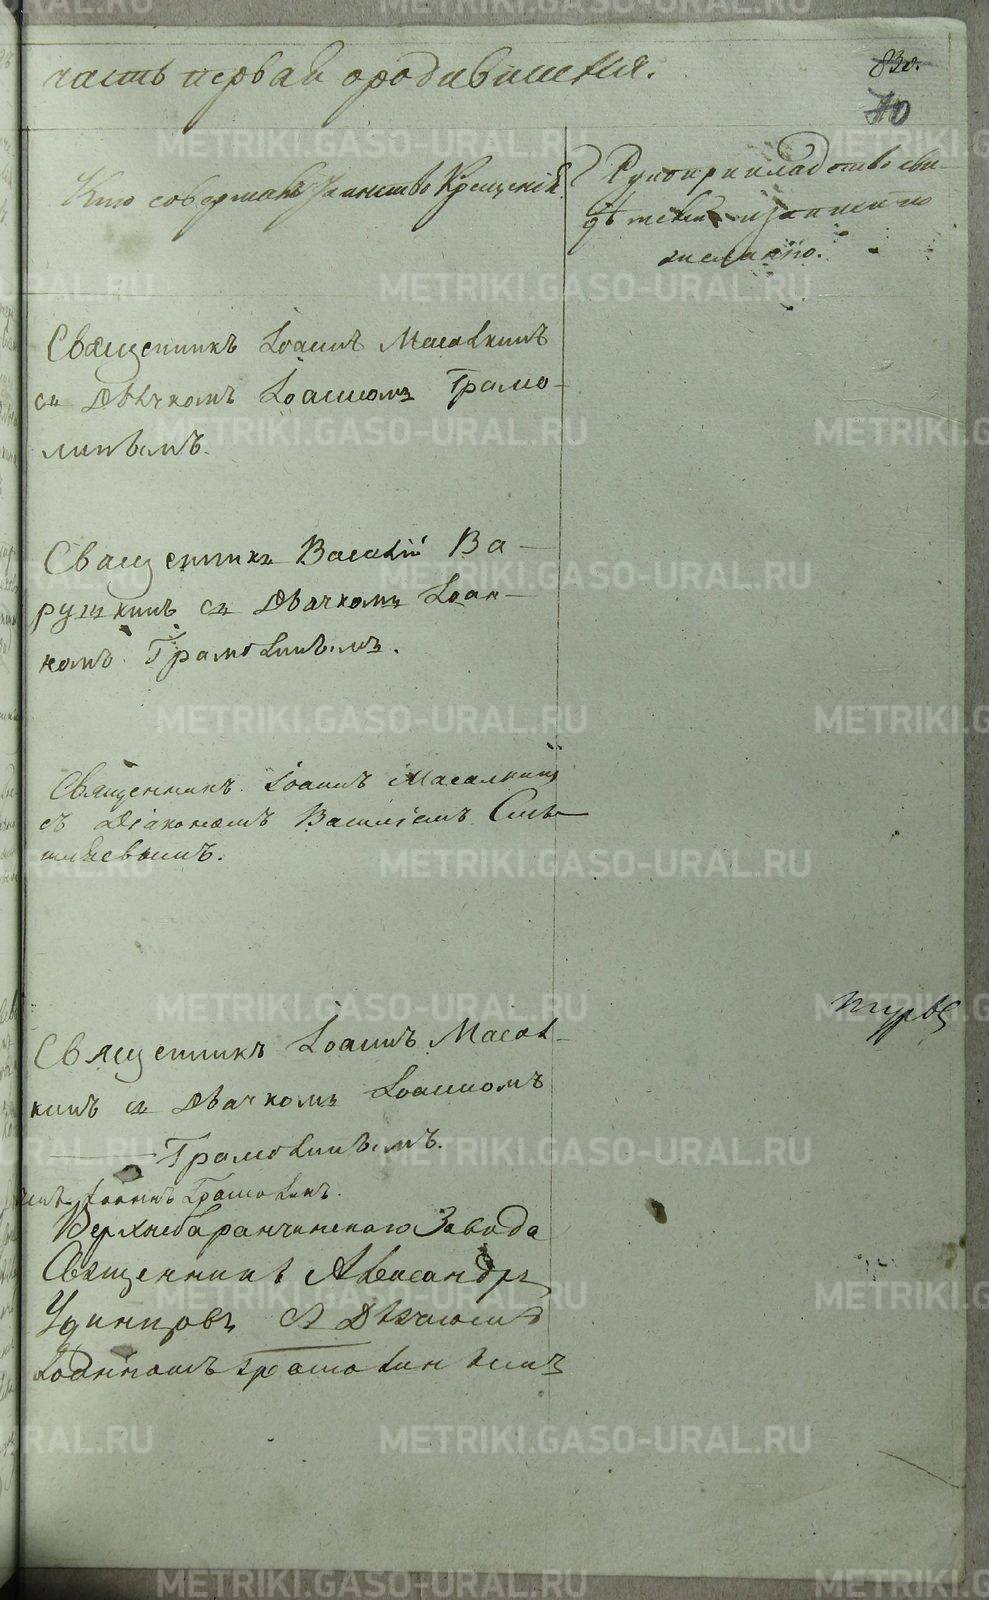 часть первая ородившихся.
83о.
70
Кто совершалъ Таинство Крещенія.
Рукоприкладство сви-
дѣтелей о записи по
желанію.
Священникъ Іоаннъ Масалкинъ
съ Дьячкомъ Іоанномъ Грамо-
линымъ.
Священникъ Василій Ва-
рушкинъ съ Дьячкомъ Іоан-
номъ Грамолинымъ.
Священникъ Іоаннъ Масалкинъ
съ Діакономъ Василіемъ
Священникъ Іоаннъ Масал-
кинъ съ Дьячкомъ Іоанномъ
Грамолинымъ.
Іоаннъ Грамолинъ.
Верхнебаранчинскаго Завода
Священникъ Александръ
Удинцовъ съ Дьячкомъ
Іоанномъ Грамолинымъ
METRIKI.GASO-URAL.RU